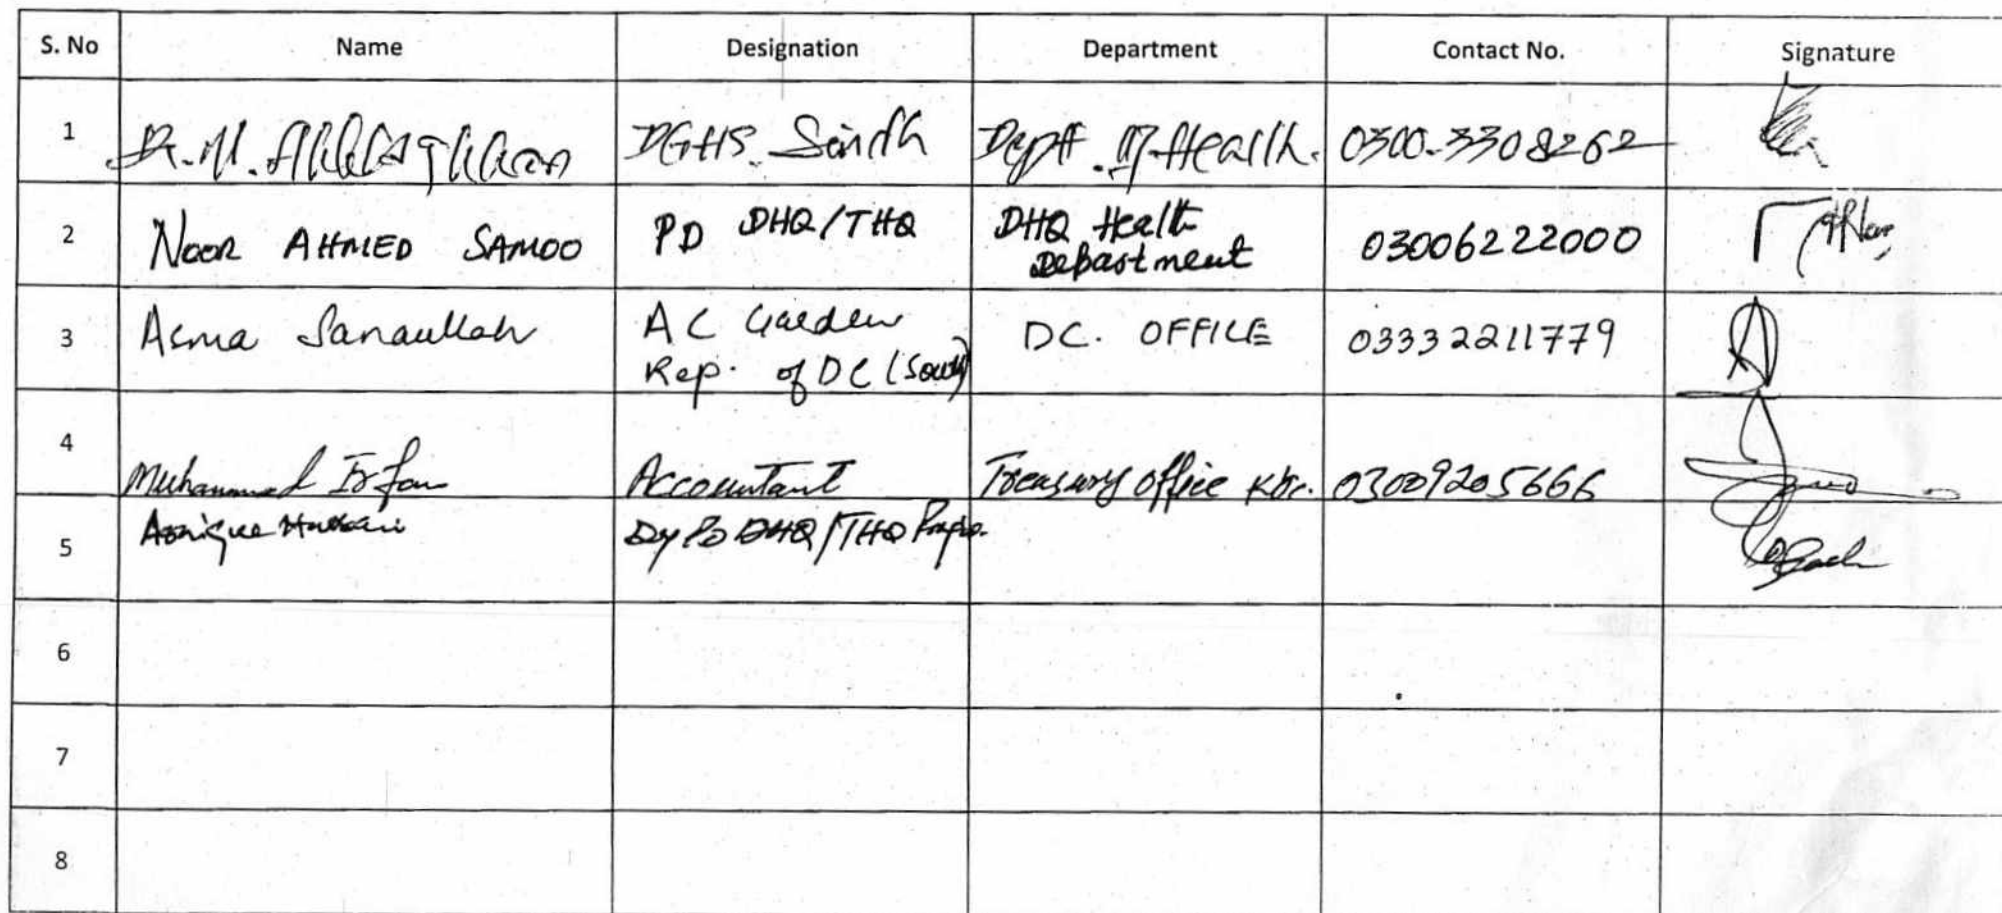 S. No Name Designation Department Contact No. Signature
1 Dr. M. Akhlaq Khan DGHS. Sindh Deptt. of Health. 0300-3308262
2 NOOR AHMED SAMOO PD DHQ/THQ DHQ Health
Department 03006222000
3 Asma Sanaullah AC Garden
Rep. of DC (South) DC. OFFICE 03332211779
4 Muhammad Irfan Accountant Treasury office Khi. 03009205666
5 Hussain Dy PD DHQ/THQ
6
7
8